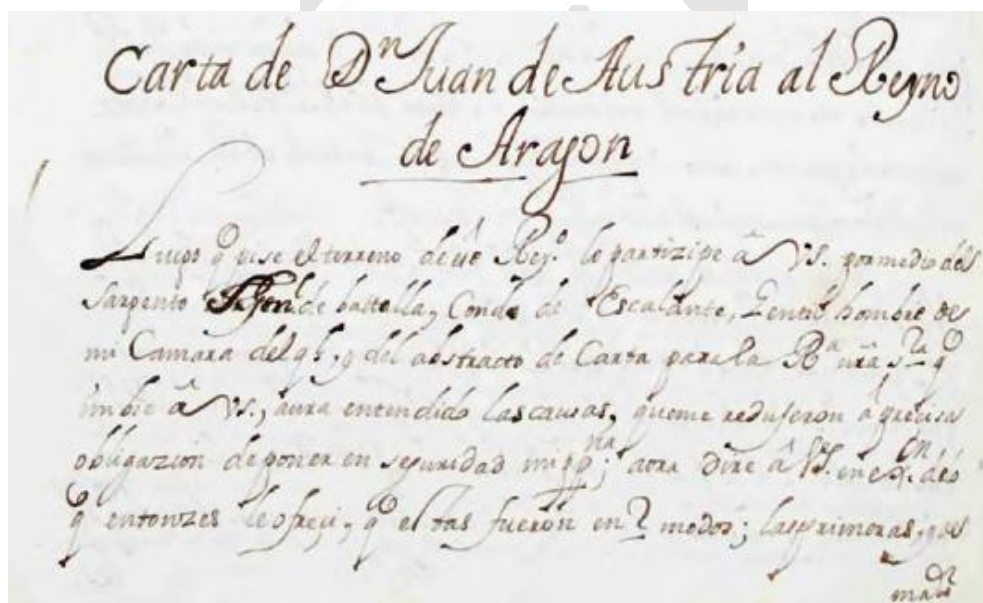 Carta de Dn Juan de Austria al Reyno
de Aragon
Luego q̄ pise el terreno de este Rey.o lo partizipe â VS. por medio del
Sargento Genl. de battalla, Conde de Escalante, Gentil hombre de
mi Camara del ql, y del abstracto de Carta para la Ra nra sra q̄
imbie â VS., aura entendido las causas, que me redujeron â precisa
obligazion de poner en seguridad mi ppna; aora dire â VS. en de lo
q̄ entonzes le ofreçi, q̄ estas fueron en 2 modos; las primeras, y de